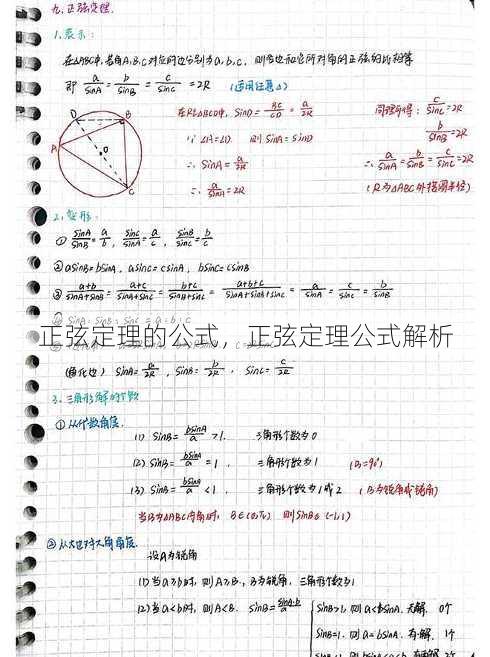 九.正弦定理.
1.表示:
在△ABC中,若角A.B.C对应的边分别为a.b.c.则各边和它所对角的正弦的比相等
即 a/sinA = b/sinB = c/sinC = 2R (适用任意△)
在Rt△BCD中, sinD = BC/CD = a/2R
同理可得: c/sinC = 2R
∵ ∠A=∠D 则 sinA = sinD
b/sinB = 2R
∴ sinA = a/2R
∴ a/sinA = b/sinB = c/sinC = 2R
∴ a/sinA = 2R
(R为△ABC外接圆半径)
A
B
C
D
O
2.变形:
① sinA/sinB = a/b, sinC/sinA = c/a, sinB/sinC = b/c
② asinB=bsinA, asinC=csinA, bsinC=csinB
③ a+b/sinA+sinB = a+c/sinA+sinC = b+c/sinB+sinC = a+b+c/sinA+sinB+sinC = a/sinA = c/sinC = b/sinB
④ sinA:sinB:sinC = a:b:c
正弦定理的公式,正弦定理公式解析
(边化角) sinA = a/2R, sinB = b/2R, sinC = c/2R
3.三角形解的个数
①从代数角度.
(1) sinB = bsinA/a >1. 三角形个数为0
(2) sinB = bsinA/a =1. 三角形个数为1 (B=90°)
(3) sinB = bsinA/a <1. 三角形个数为1或2 (B为锐角或钝角)
当B为△ABC内角时, B∈(0,π) 则
②从大边对大角角度.
设A为锐角
(1)当a≥b时, 则A≥B., B为锐角, 三角形个数为1
(2)当a<b时, 则A<B. sinB = sinA·b/a
sinB>1, 则a<bsinA. 无解. 0个
sinB=1. 则a=bsinA. 有解. 1个